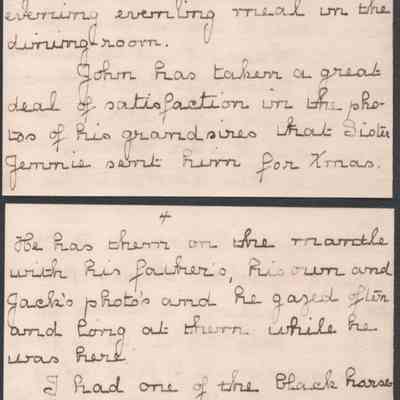 evening evening meal in the
dining-room.
John has taken a great
deal of satisfaction in the pho-
tos of his grandsires that Sister
Jennie sent him for Xmas.
4
He has them on the mantle
with his father's, his own and
Jack's photo's and he gazed often
and long at them while he
was here.
I had one of the black horse